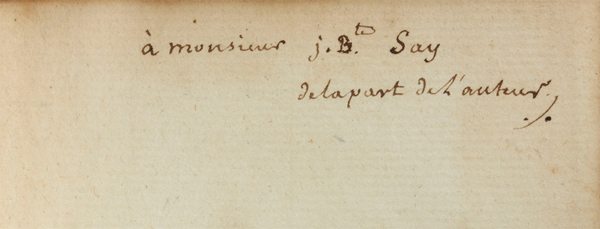 à monsieur j. B.te Say
delapart de l'auteur ./.